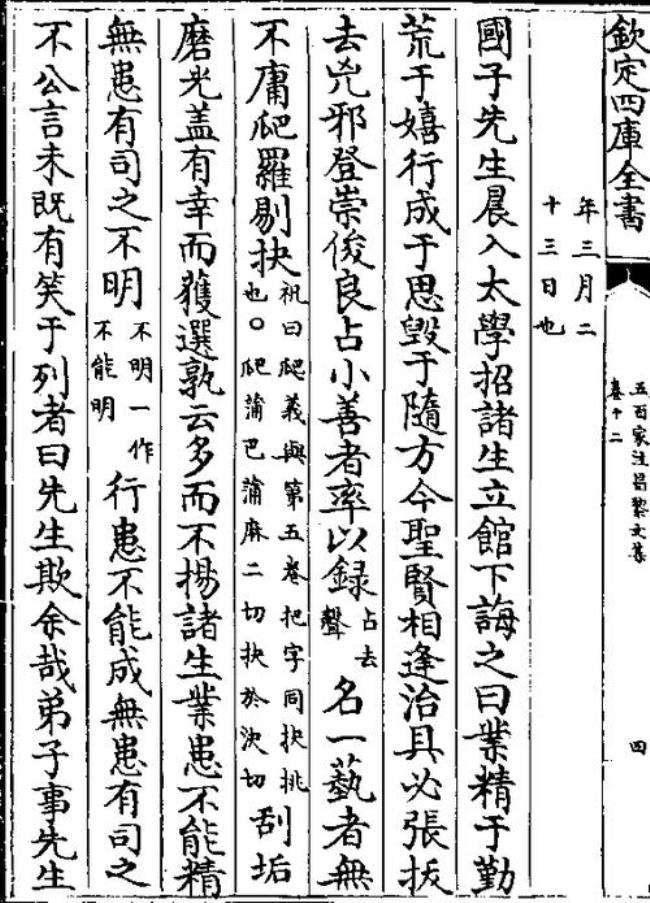 欽定四庫全書
五百家注昌黎文集
卷十二
四
年三月二
十三日也
國子先生晨入太學招諸生立館下誨之曰業精于勤
荒于嬉行成于思毀于隨方今聖賢相逢治具必張拔
去兇邪登崇俊良占小善者率以録占去聲名一藝者無
不庸爬羅剔抉祝曰爬義與第五卷把字同抉挑也○爬蒲巴蒲麻二切抉於決切刮垢
磨光盖有幸而獲選孰云多而不揚諸生業患不能精
無患有司之不明不明一作不能明行患不能成無患有司之
不公言未既有笑于列者曰先生欺余哉弟子事先生